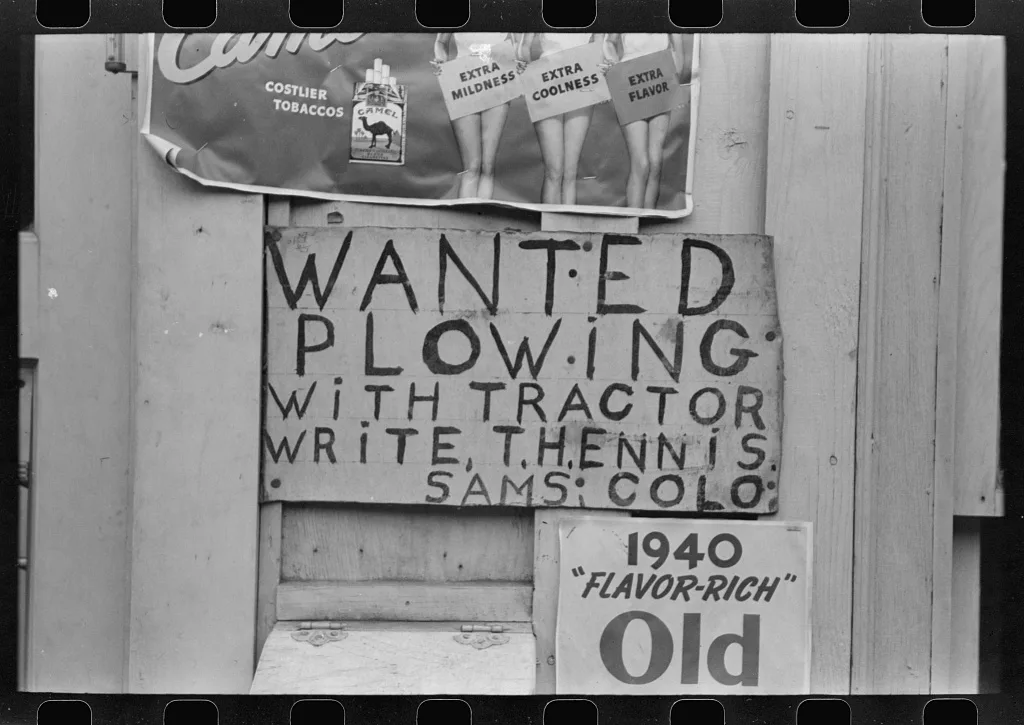 Camel
COSTLIER
TOBACCOS
CAMEL
EXTRA
MILDNESS
EXTRA
COOLNESS
EXTRA
FLAVOR
WANTED
PLOWING
WiTH TRACTOR
WRiTE, T.H.ENNiS.
SAMS; COLO:
1940
"FLAVOR-RICH"
Old